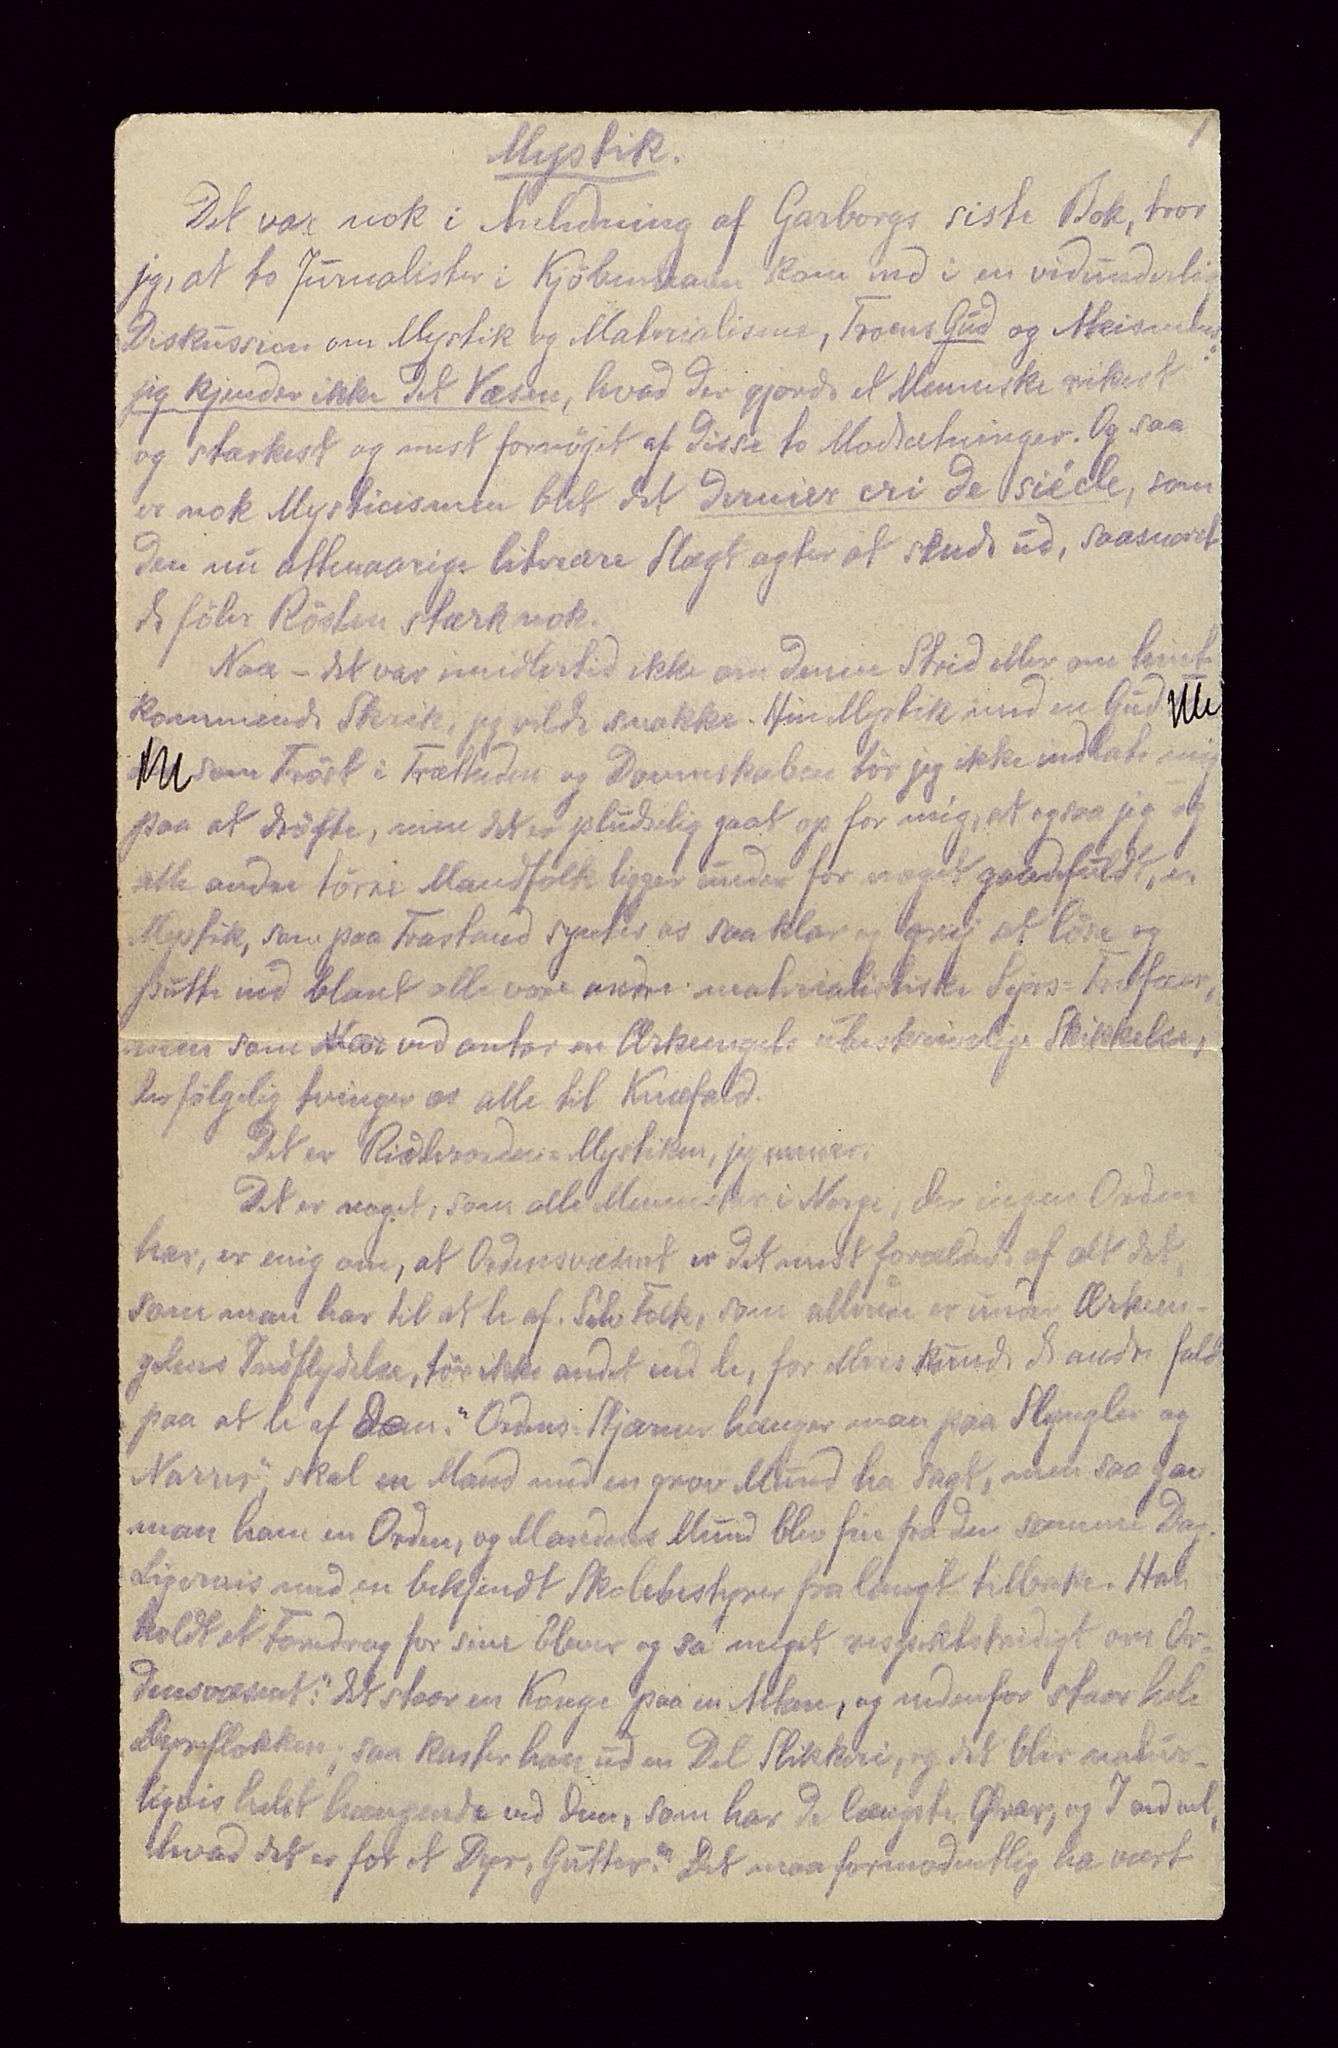 1
Mystik.
Det var nok i Anledning af Garborgs siste Bok, tror
jeg, at to Jurnalister i Kjöbenhavn kom ind i en vidunderlig
Diskussion om Mystik og Materialisme, Troens Gud og Ateismens:
jeg kjender ikke det Væsen, hvad der gjorde et Menneske rikest
og stærkest og mest fornöjet af disse to Modsætninger. Og saa
er nok Mysticismen blet det dernier cri de siécle, som
den nu attenaarige literære Slægt agter at sende ud, saasnart
de föler Rösten stærk nok.
Naa – det var imidlertid ikke om denne Strid eller om hint
kommende Skrik, jeg vilde snakke. Hin Mystik med en Gud
som Tröst i Trætheden og Dovenskaben tör jeg ikke indlate mig
paa at dröfte, men det er pludselig gaat op for mig, at ogsaa jeg og
alle andre törre Mandfolk ligger under for noget gaadefuldt, en
Mystik, som paa Frastand syntes os saa klar og grej at löse og
putte ind blant alle vore andre materialistiske Sejrs-Trofæer,
men som nær ved antar en Ærkeengels ubeskrivelige Skikkelse,
der fölgelig tvinger os alle til Knæfald.
Det er Ridderorden-Mystiken, jeg mener.
Det er noget, som alle Mennesker i Norge, der ingen Orden
har, er enig om, at Ordensvæsenet er det mest forældede af alt det,
som man har til at le af. Selv Folk, som allerede er under Ærkeen-
gelens Indflydelse, tör ikke andet end le, for ellers kunde de andre falde
paa at le af dem. "Ordens-Stjærner hænger man paa Slyngler og
Narrer", skal en Mand med en grov Mund ha sagt, men saa gav
man ham en Orden, og Mandens Mund blev fin fra den samme Dag.
Ligervis med en bekjendt Skolebestyrer fra langt tilbake. Han
holdt et Foredrag for sine Elever og sa meget respektstridigt om Or-
densvæsenet: "det staar en Konge paa en Altan, og nedenfor staar hele
Dyreflokken; saa kaster han ud en Del Slikkeri, og det blir natur-
ligvis helst hængende ved den, som har de længste Ører, og I ved vel,
hvad det er for et Dyr, Gutter." Det maa formodentlig ha vært